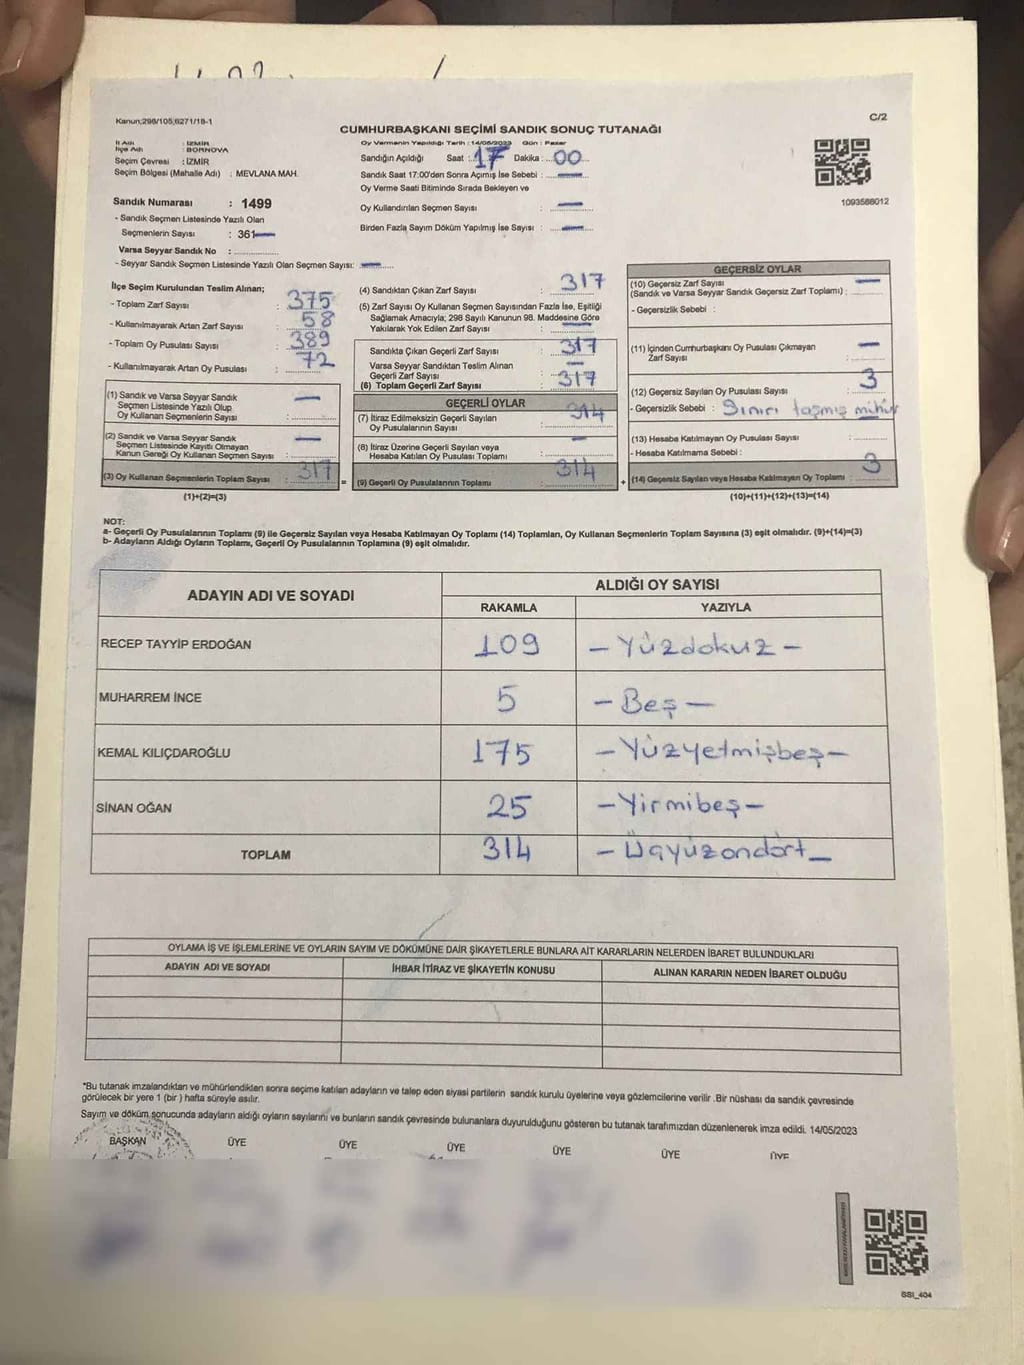 Kanun:298/105;6271/18-1
C/2
CUMHURBAŞKANI SEÇİMİ SANDIK SONUÇ TUTANAĞI
İl Adı : İZMİR
İlçe Adı : BORNOVA
Seçim Çevresi : İZMİR
Seçim Bölgesi (Mahalle Adı) : MEVLANA MAH.
Sandık Numarası : 1499
- Sandık Seçmen Listesinde Yazılı Olan
Seçmenlerin Sayısı : 361
Varsa Seyyar Sandık No :
- Seyyar Sandık Seçmen Listesinde Yazılı Olan Seçmen Sayısı: —
Oy Vermenin Yapıldığı Tarih :14/05/2023 Gün : Pazar
Sandığın Açıldığı Saat :.17 Dakika:..00
Sandık Saat 17:00'den Sonra Açımış İse Sebebi : —
Oy Verme Saati Bitiminde Sırada Bekleyen ve
Oy Kullandırılan Seçmen Sayısı : —
Birden Fazla Sayım Döküm Yapılmış İse Sayısı : —
1093588012
İlçe Seçim Kurulundan Teslim Alınan;
- Toplam Zarf Sayısı : 375
- Kullanılmayarak Artan Zarf Sayısı : 58
- Toplam Oy Pusulası Sayısı : 389
- Kullanılmayarak Artan Oy Pusulası : 72
(1) Sandık ve Varsa Seyyar Sandık
Seçmen Listesinde Yazılı Olup
Oy Kullanan Seçmenlerin Sayısı : —
(2) Sandık ve Varsa Seyyar Sandık
Seçmen Listesinde Kayıtlı Olmayan
Kanun Gereği Oy Kullanan Seçmen Sayısı : —
(3) Oy Kullanan Seçmenlerin Toplam Sayısı : 317
(1)+(2)=(3)
(4) Sandıktan Çıkan Zarf Sayısı : 317
(5) Zarf Sayısı Oy Kullanan Seçmen Sayısından Fazla İse, Eşitliği
Sağlamak Amacıyla; 298 Sayılı Kanunun 98. Maddesine Göre
Yakılarak Yok Edilen Zarf Sayısı : —
Sandıkta Çıkan Geçerli Zarf Sayısı : 317
Varsa Seyyar Sandıktan Teslim Alınan
Geçerli Zarf Sayısı : —
(6) Toplam Geçerli Zarf Sayısı : 317
GEÇERLİ OYLAR
(7) İtiraz Edilmeksizin Geçerli Sayılan
Oy Pusulalarının Sayısı : 314
(8) İtiraz Üzerine Geçerli Sayılan veya
Hesaba Katılan Oy Pusulası Toplamı : —
= (9) Geçerli Oy Pusulalarının Toplamı : 314 +
GEÇERSİZ OYLAR
(10) Geçersiz Zarf Sayısı
(Sandık ve Varsa Seyyar Sandık Geçersiz Zarf Toplamı) : —
- Geçersizlik Sebebi :
(11) İçinden Cumhurbaşkanı Oy Pusulası Çıkmayan
Zarf Sayısı : —
(12) Geçersiz Sayılan Oy Pusulası Sayısı : 3
- Geçersizlik Sebebi : Sınırı taşmış mühür
(13) Hesaba Katılmayan Oy Pusulası Sayısı :
- Hesaba Katılmama Sebebi :
(14) Geçersiz Sayılan veya Hesaba Katılmayan Oy Toplamı : 3
(10)+(11)+(12)+(13)=(14)
NOT:
a- Geçerli Oy Pusulalarının Toplamı (9) ile Geçersiz Sayılan veya Hesaba Katılmayan Oy Toplamı (14) Toplamları, Oy Kullanan Seçmenlerin Toplam Sayısına (3) eşit olmalıdır. (9)+(14)=(3)
b- Adayların Aldığı Oyların Toplamı, Geçerli Oy Pusulalarının Toplamına (9) eşit olmalıdır.
ADAYIN ADI VE SOYADI
ALDIĞI OY SAYISI
RAKAMLA YAZIYLA
RECEP TAYYİP ERDOĞAN 109 – Yüzdokuz –
MUHARREM İNCE 5 – Beş –
KEMAL KILIÇDAROĞLU 175 – Yüzyetmişbeş –
SİNAN OĞAN 25 – Yirmibeş –
TOPLAM 314 – Üçyüzondört –
OYLAMA İŞ VE İŞLEMLERİNE VE OYLARIN SAYIM VE DÖKÜMÜNE DAİR ŞİKAYETLERLE BUNLARA AİT KARARLARIN NELERDEN İBARET BULUNDUKLARI
ADAYIN ADI VE SOYADI İHBAR İTİRAZ VE ŞİKAYETİN KONUSU ALINAN KARARIN NEDEN İBARET OLDUĞU
*Bu tutanak imzalandıktan ve mühürlendikten sonra seçime katılan adayların ve talep eden siyasi partilerin sandık kurulu üyelerine veya gözlemcilerine verilir .Bir nüshası da sandık çevresinde
görülecek bir yere 1 (bir ) hafta süreyle asılır.
Sayım ve döküm sonucunda adayların aldığı oyların sayılarını ve bunların sandık çevresinde bulunanlara duyurulduğunu gösteren bu tutanak tarafımızdan düzenlenerek imza edildi. 14/05/2023
BAŞKAN ÜYE ÜYE ÜYE ÜYE ÜYE ÜYE
SSI_404